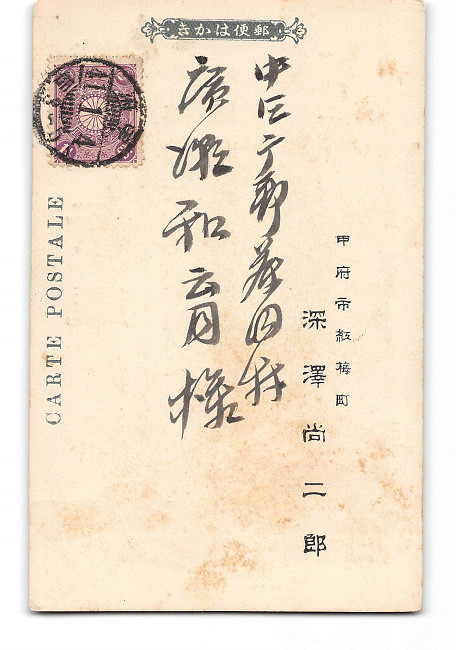 郵便はかき
甲府市紅梅町
深澤尚二郎
中巨摩郡
廣瀬和育様
CARTE POSTALE